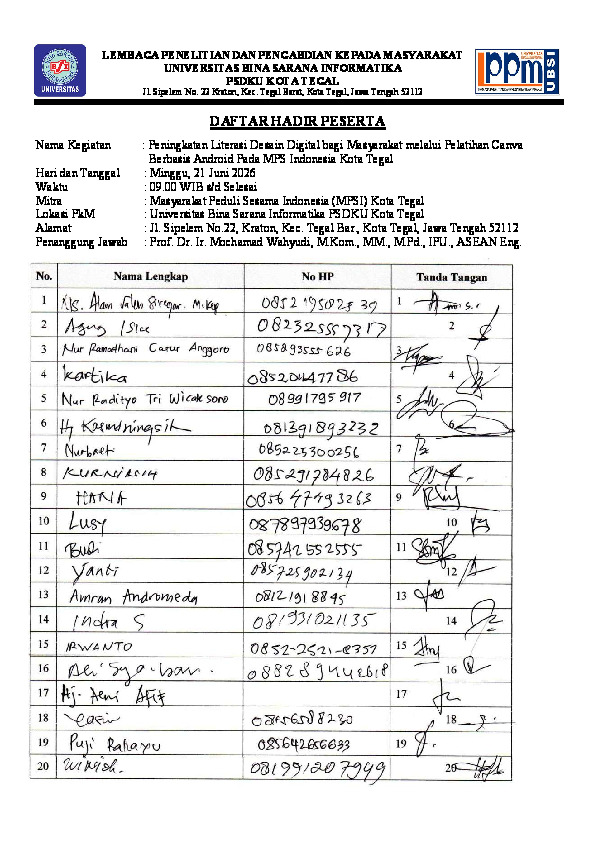 LEMBAGA PENELITIAN DAN PENGABDIAN KEPADA MASYARAKAT
UNIVERSITAS BINA SARANA INFORMATIKA
PSDKU KOTA TEGAL
Jl. Sipelem No. 22 Kraton, Kec. Tegal Barat, Kota Tegal, Jawa Tengah 52112
UNIVERSITAS
lppm
UBSI
DAFTAR HADIR PESERTA
Nama Kegiatan : Peningkatan Literasi Desain Digital bagi Masyarakat melalui Pelatihan Canva
Berbasis Android Pada MPS Indonesia Kota Tegal
Hari dan Tanggal : Minggu, 21 Juni 2026
Waktu : 09.00 WIB s/d Selesai
Mitra : Masyarakat Peduli Sesama Indonesia (MPSI) Kota Tegal
Lokasi PkM : Universitas Bina Sarana Informatika PSDKU Kota Tegal
Alamat : Jl. Sipelem No.22, Kraton, Kec. Tegal Bar., Kota Tegal, Jawa Tengah 52112
Penanggung Jawab : Prof. Dr. Ir. Mochamad Wahyudi, M.Kom., MM., M.Pd., IPU., ASEAN Eng.
No. Nama Lengkap No HP Tanda Tangan
1 Alam 1
2 Agung 2
3 Nur Ramadhani Catur Anggoro 085893555626 3
4 Kartika 4
5 Nur Radityo Tri Wicaksono 08991795917 5
6 Hj 081391893232 6
7 085225300256 7
8 085291784826
9 HANA 9
10 Lusy 087897939678 10
11 Budi 085742552555 11
12 Yanti 085725902134 12
13 Amran Andromeda 08121918845 13
14 Indra S 081931021135 14
15 IRWANTO 0852-2521-8357 15
16 16
17 Hj. 17
18 18
19 Puji Rahayu 085642656633 19
20 081991207949 20